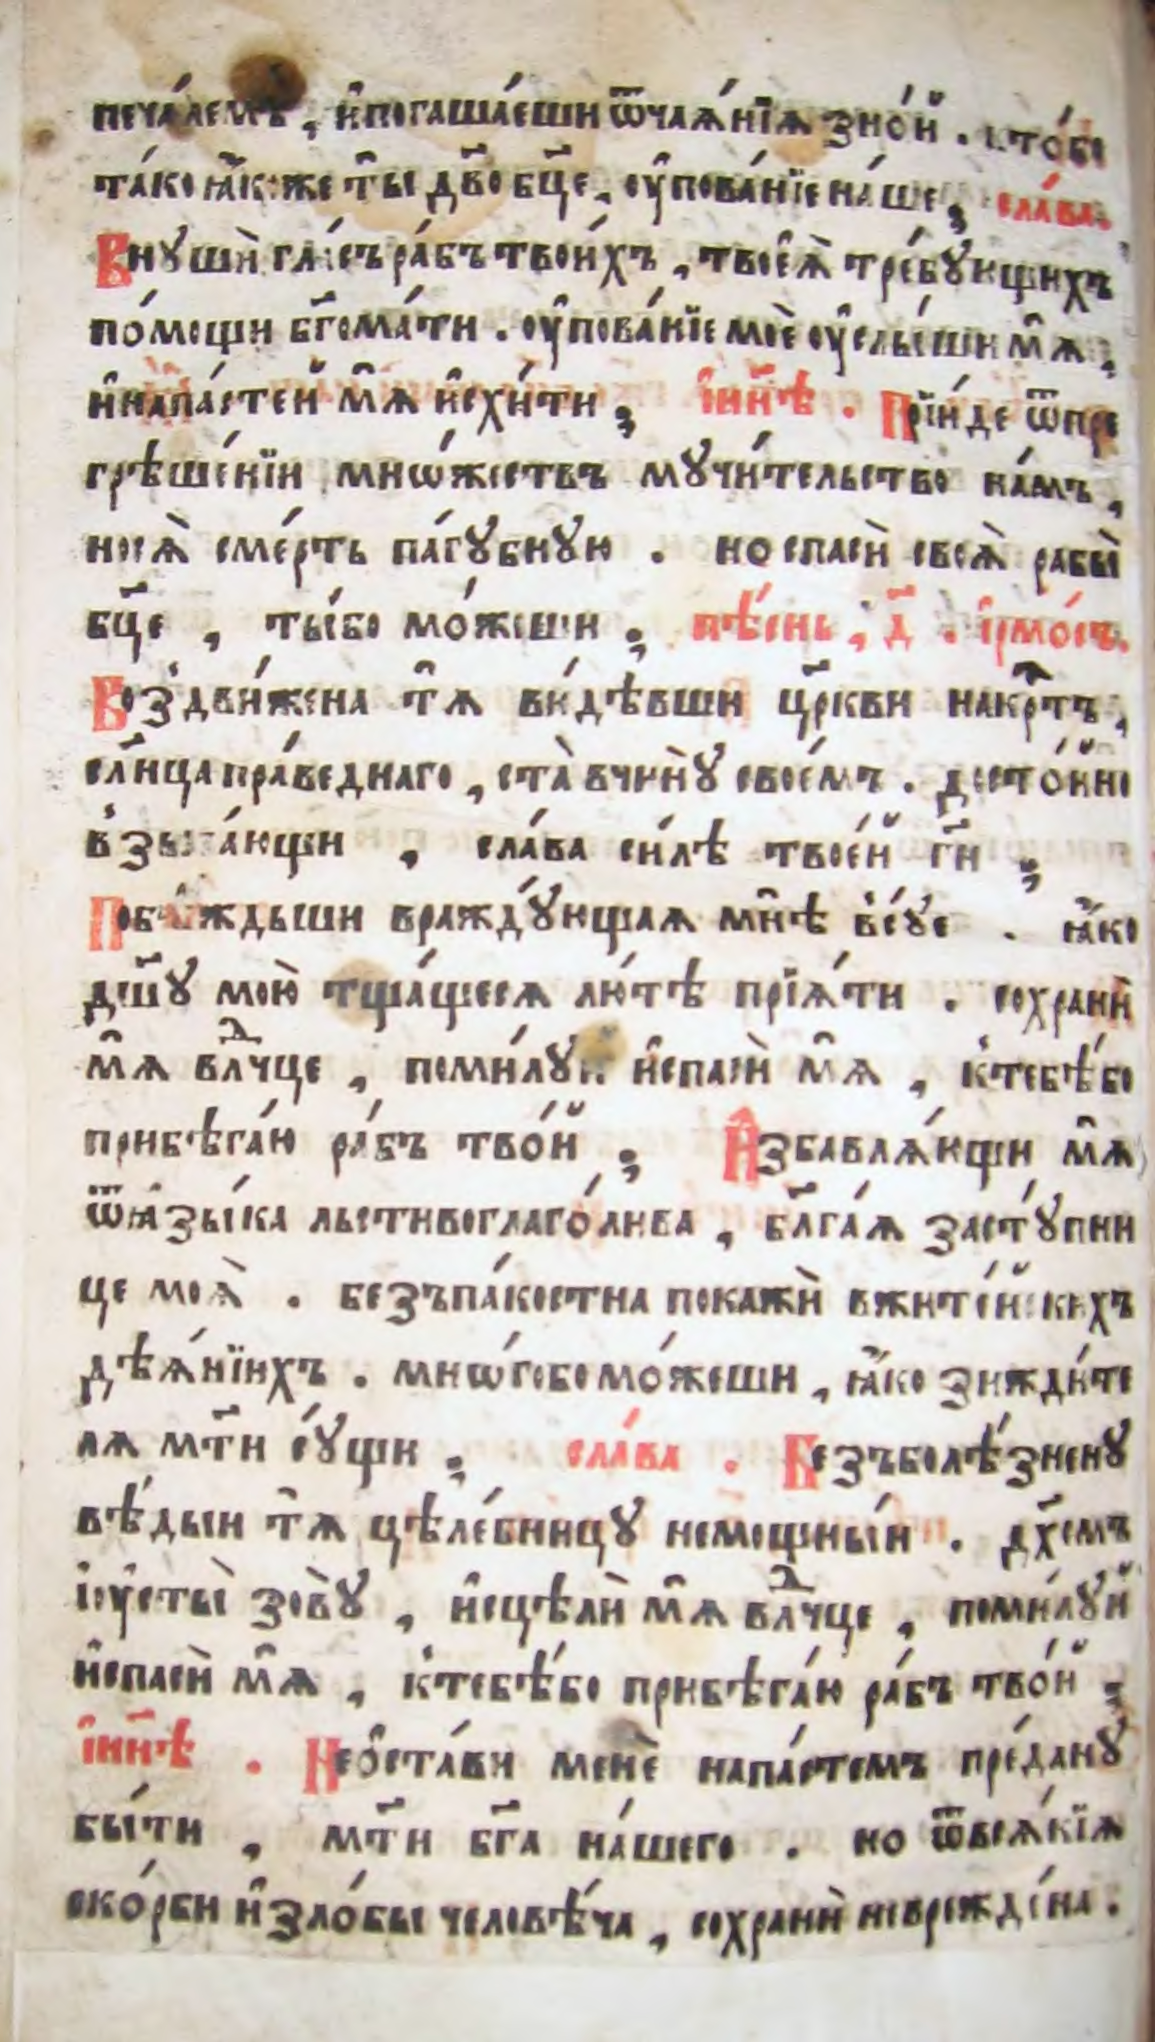 печа́лемъ , и҆погаша́еши ѿчаѧ́нїѧ зно́й . кто́бо
та́ко ꙗ҆́коже ты̀ дв҃о бц҃е , ѹ҆пова́нїе на́ше , сла́ва .
Внꙋшѝ гла́съ ра́бъ твои́хъ , твоеѧ̀ тре́бꙋющихъ
по́мощи бг҃ома́ти . ѹ҆пова́нїе моѐ ѹ҆слы́ши мѧ̀ ,
и҆напа́стей мѧ̀ и҆схи́ти , і҆нн҃ѣ . Прїи́де ѿпре
грѣше́нїи мнѡ́жествъ мꙋчи́тельство на́мъ ,
носѧ̀ сме́рть па́гꙋбнꙋю . но спасѝ своѧ̀ рабы̀
бц҃е , ты́бо мо́жеши , пѣ́снь , д҃ . і҆рмо́съ .
Воздви́жена тѧ̀ ви́дѣвши цр҃кви накр҃тъ ,
сл҃нца пра́веднаго , ста̀ вчинꙋ̀ своемъ . досто́йно
взыва́ющи , сла́ва си́лѣ твое́й гд҃и ,
Побѣ́ждьши враждꙋ́ющаѧ мнѣ̀ всꙋ́е . ꙗ҆́ко
дш҃ꙋ мою̀ тща́щесѧ лю́тѣ прїѧ́ти . сохранѝ
мѧ̀ влⷣчце , поми́лꙋй и҆спасѝ мѧ̀ , ктебѣ́бо
прибѣга́ю ра́бъ тво́й , И҆збавлѧ́ющи мѧ̀
ѿꙗ҆зы́ка льстивоглаго́лива , бл҃га́ѧ застꙋ́пни
це моѧ̀ . безъпа́костна покажѝ вжите́йскихъ
дѣѧ́нїихъ . мнѡ́гобо мо́жеши , ꙗ҆́ко зижди́те
лѧ мт҃и сꙋ́щи , сла́ва . Безъболѣ́зненꙋ
вѣ́дыи тѧ̀ цѣле́бницꙋ немощны́и . дх҃омъ
і҆ѹ҆сты̀ зовꙋ̀ , и҆сцѣлѝ мѧ̀ влⷣчце , поми́лꙋй
и҆спасѝ мѧ̀ , ктебѣ́бо прибѣга́ю ра́бъ тво́й ,
і҆нн҃ѣ . Неѡ҆ста́ви менѐ напа́стемъ пре́данꙋ
бы́ти , мт҃и бг҃а на́шего . но ѿвсѧ́кїѧ
ско́рби и҆зло́бы человѣ́ча , сохранѝ невреждена .